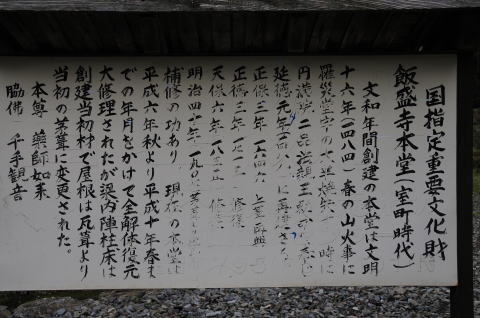 国指定重要文化財
飯盛寺本堂(室町時代)
文和年間創建の本堂は文明
十六年(一四八四)春の山火事に
羅災堂宇の大半焼 時に
円 二品法親王
延徳元年(一四八九)に再建さる
正保三年(一六四六)上葺
正徳三年(一七一三)修復
天保六年(一八三五)修
明治四十年(一九〇
補修の功あり 現在の本堂は
平成六年秋より平成十年春ま
での年月をかけて全解体復元
大修理されたが梁内陣柱床は
創建当初材で屋根は瓦葺より
当初の茅葺に変更された。
本尊 薬師如来
脇佛 千手観音